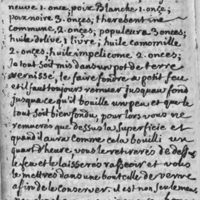 neuve 1 once, poix Blanche 1 once;
poix noire 3 onces; therebentine
commune, 2 onces; populeum 3 onces;
huile dolive 1 livre; huile camomille
2 onces; huile impelicome 2 onces;
tout mis dans un pot de terre
vernissé, le faire fondre a petit feu,
et il faut toujours remuer jusquau fond
jusquace qu'il bouille un peu et que le
tout soit bien fondu, pour lors vous ne
remuerez que dessus la superficie et
quand il aura comme cela bouilli un
quart dheure vous le retirerez de dessus
le feu et le laisserez rassoir et vous
le mettrez dans une bouteille de verre
afin de le conserver. il est non seulement